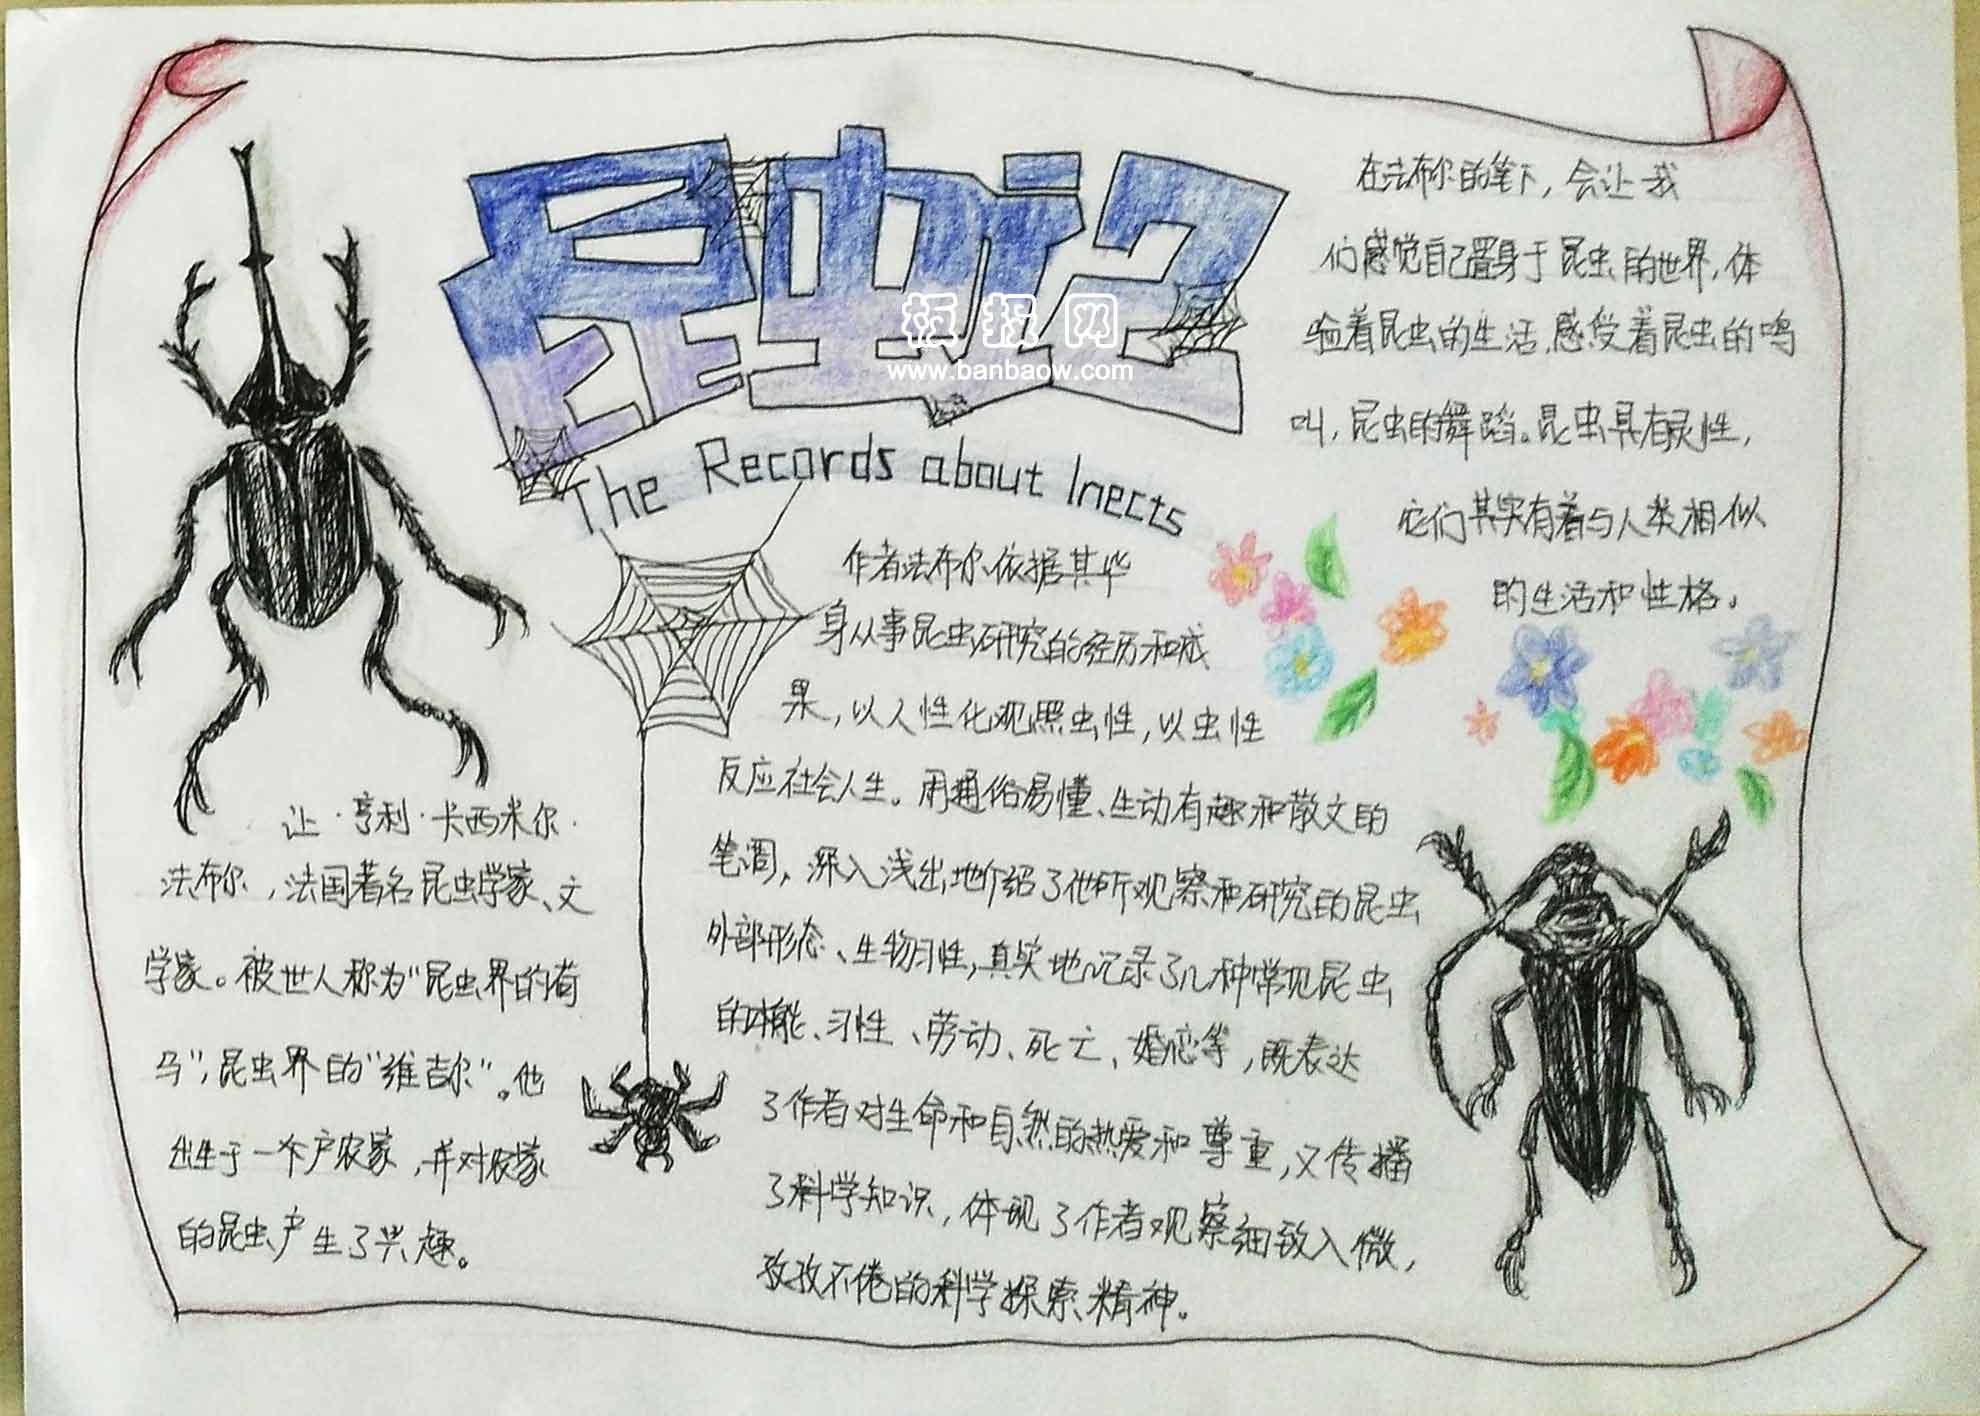 昆虫记
板报网
www.banbaow.com
The Records about Inects
让·亨利·卡西米尔·
法布尔，法国著名昆虫学家、文
学家。被世人称为"昆虫界的荷
马"，昆虫界的"维吉尔"。他
出生于一个户农家，并对农家
的昆虫产生了兴趣。
作者法布尔依据其毕
身从事昆虫研究的经历和成
果，以人性化观照虫性，以虫性
反应社会人生。用通俗易懂、生动有趣和散文的
笔调，深入浅出地介绍了他所观察和研究的昆虫
外部形态、生物习性，真实地记录了几种常见昆虫
的本能、习性、劳动、死亡、婚恋等，既表达
了作者对生命和自然的热爱和尊重，又传播
了科学知识，体现了作者观察细致入微，
孜孜不倦的科学探索精神。
在法布尔的笔下，会让我
们感觉自己置身于昆虫的世界，体
验着昆虫的生活，感受着昆虫的鸣
叫，昆虫的舞蹈。昆虫具有灵性，
它们其实有着与人类相似
的生活和性格。